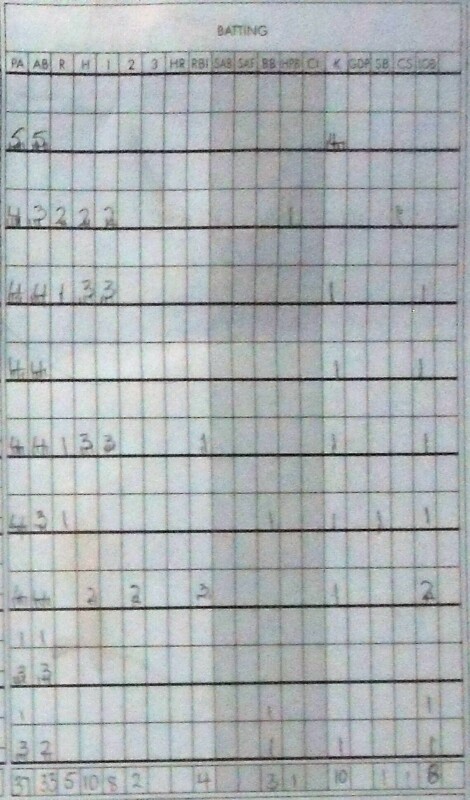 BATTING
PA AB R H 1 2 3 HR RBI SAB SAF BB HPB CI K GDP SB CS LOB
5 5 4
4 3 2 2 2 1 1
4 4 1 3 3 1 1
4 4 1 1
4 4 1 3 3 1 1 1
4 3 1 1 1 1 1
4 4 2 2 3 1 2
1 1
3 3
1 1 1
3 2 1 1 1
37 33 5 10 8 2 4 3 1 10 1 1 8